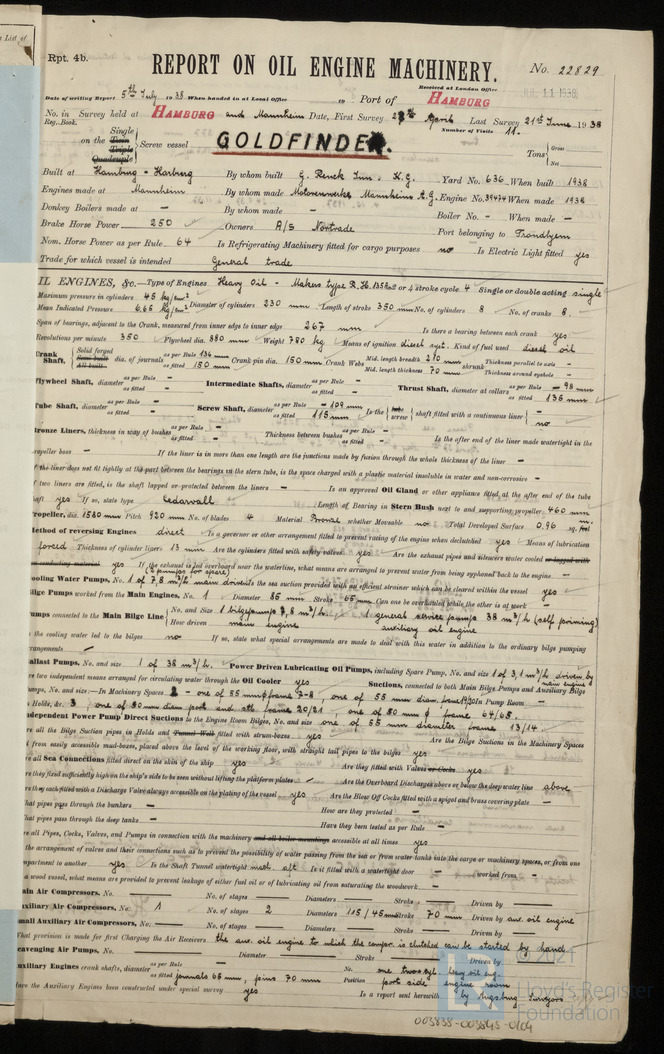 t List of
Rpt. 4b.
REPORT ON OIL ENGINE MACHINERY.
No. 22829
Received at London Office
JUL 11 1938
Date of writing Report 5th July 1938 When handed in at Local Office 19 Port of HAMBURG
No. in Survey held at HAMBURG and Mannheim Date, First Survey 28th April Last Survey 21st June 1938
Reg. Book. Number of Visits 11.
on the Single Twin Triple Quadruple Screw vessel GOLDFINDER. Tons Gross Net
Built at Hamburg - Harburg By whom built G. Renck Jun. K.G. Yard No. 636 When built 1938
Engines made at Mannheim By whom made Motorenwerke Mannheim A.G. Engine No. 39474 When made 1938
Donkey Boilers made at — By whom made — Boiler No. — When made —
Brake Horse Power 250 Owners A/S Nortrade Port belonging to Trondhjem
Nom. Horse Power as per Rule 64 Is Refrigerating Machinery fitted for cargo purposes no Is Electric Light fitted yes
Trade for which vessel is intended General trade
IL ENGINES, &c. — Type of Engines Heavy Oil - Makers type R.H. 2 or 4 stroke cycle 4 Single or double acting single
Maximum pressure in cylinders 45 kg/cm² Diameter of cylinders 230 mm Length of stroke 350 mm No. of cylinders 8 No. of cranks 8
Mean Indicated Pressure 6.65 kg/cm²
Span of bearings, adjacent to the Crank, measured from inner edge to inner edge 267 mm Is there a bearing between each crank yes
Revolutions per minute 350 Flywheel dia. 880 mm Weight 780 kg Means of ignition diesel syst. Kind of fuel used diesel oil
Crank Shaft, Solid forged Semi built All built dia. of journals as per Rule 136 mm as fitted 150 mm Crank pin dia. 150 mm Crank Webs Mid. length breadth 210 mm Mid. length thickness 70 mm shrunk Thickness parallel to axis — Thickness around eyehole —
Flywheel Shaft, diameter as per Rule — as fitted — Intermediate Shafts, diameter as per Rule — as fitted — Thrust Shaft, diameter at collars as per Rule 98 mm as fitted 135 mm
Tube Shaft, diameter as per Rule — as fitted — Screw Shaft, diameter as per Rule 109 mm as fitted 115 mm Is the tube screw shaft fitted with a continuous liner — no
Bronze Liners, thickness in way of bushes as per Rule — as fitted — Thickness between bushes as per Rule — as fitted — Is the after end of the liner made watertight in the
propeller boss — If the liner is in more than one length are the junctions made by fusion through the whole thickness of the liner —
If the liner does not fit tightly at the part between the bearings in the stern tube, is the space charged with a plastic material insoluble in water and non-corrosive —
If two liners are fitted, is the shaft lapped or protected between the liners — Is an approved Oil Gland or other appliance fitted at the after end of the tube
shaft yes If so, state type Cedervall Length of Bearing in Stern Bush next to and supporting propeller 460 mm
Propeller, dia. 1580 mm Pitch 920 mm No. of blades 4 Material Bronze whether Moveable no Total Developed Surface 0.96 sq. feet m.
Method of reversing Engines direct Is a governor or other arrangement fitted to prevent racing of the engine when declutched yes Means of lubrication
forced Thickness of cylinder liners 13 mm Are the cylinders fitted with safety valves yes Are the exhaust pipes and silencers water cooled or lagged with
non-conducting material yes If the exhaust is led overboard near the waterline, what means are arranged to prevent water being syphoned back to the engine —
Cooling Water Pumps, No. 1 of 7,8 m³/h main driven Is the sea suction provided with an efficient strainer which can be cleared within the vessel yes
Bilge Pumps worked from the Main Engines, No. 1 Diameter 85 mm Stroke 65 mm Can one be overhauled while the other is at work —
Pumps connected to the Main Bilge Line No. and Size 1 bilge pump 7,8 m³/h. 1 general service pump 38 m³/h (self priming)
How driven main engine auxiliary oil engine
Is the cooling water led to the bilges no If so, state what special arrangements are made to deal with this water in addition to the ordinary bilge pumping
arrangements —
Ballast Pumps, No. and size 1 of 38 m³/h. Power Driven Lubricating Oil Pumps, including Spare Pump, No. and size 1 of 3,1 m³/h, driven by main engine
Are two independent means arranged for circulating water through the Oil Cooler yes Suctions, connected to both Main Bilge Pumps and Auxiliary Bilge
Pumps, No. and size:—In Machinery Spaces 2 - one of 55 mm ø frame 7-8, one of 55 mm diam. frame 19/20 In Pump Room —
In Holds, &c. 3, one of 50 mm diam port and stb frame 20/21, one of 50 mm ø frame 64/65.
Independent Power Pump Direct Suctions to the Engine Room Bilges, No. and size one of 55 mm diameter frame 13/14.
Are all the Bilge Suction pipes in Holds and Tunnel Well fitted with strum-boxes yes Are the Bilge Suctions in the Machinery Spaces
led from easily accessible mud-boxes, placed above the level of the working floor, with straight tail pipes to the bilges yes
Are all Sea Connections fitted direct on the skin of the ship yes Are they fitted with Valves or Cocks yes
Are they fixed sufficiently high on the ship's side to be seen without lifting the platform plates — Are the Overboard Discharges above or below the deep water line above
Are they each fitted with a Discharge Valve always accessible on the plating of the vessel yes Are the Blow Off Cocks fitted with a spigot and brass covering plate —
What pipes pass through the bunkers — How are they protected —
What pipes pass through the deep tanks — Have they been tested as per Rule —
Are all Pipes, Cocks, Valves, and Pumps in connection with the machinery and all boiler mountings accessible at all times yes
Is the arrangement of valves and their connections such as to prevent the possibility of water passing from the sea or from water tanks into the cargo or machinery spaces, or from one
compartment to another yes Is the Shaft Tunnel watertight mach. aft Is it fitted with a watertight door — worked from —
If a wood vessel, what means are provided to prevent leakage of either fuel oil or of lubricating oil from saturating the woodwork —
Main Air Compressors, No. — No. of stages — Diameters — Stroke — Driven by —
Auxiliary Air Compressors, No. 1 No. of stages 2 Diameters 115 / 45 mm Stroke 70 mm Driven by aux. oil engine
Small Auxiliary Air Compressors, No. — No. of stages — Diameters — Stroke — Driven by —
What provision is made for first Charging the Air Receivers the aux. oil engine to which the compr. is clutched can be started by hand
Scavenging Air Pumps, No. — Diameter — Stroke — Driven by —
Auxiliary Engines crank shafts, diameter as per Rule as fitted journals 65 mm, pins 70 mm No. one two cyl. heavy oil eng. Position port side engine room
Have the Auxiliary Engines been constructed under special survey yes Is a report sent herewith by Augsburg Surveyors
© 2021
Lloyd's Register
Foundation
003838-003845-0104